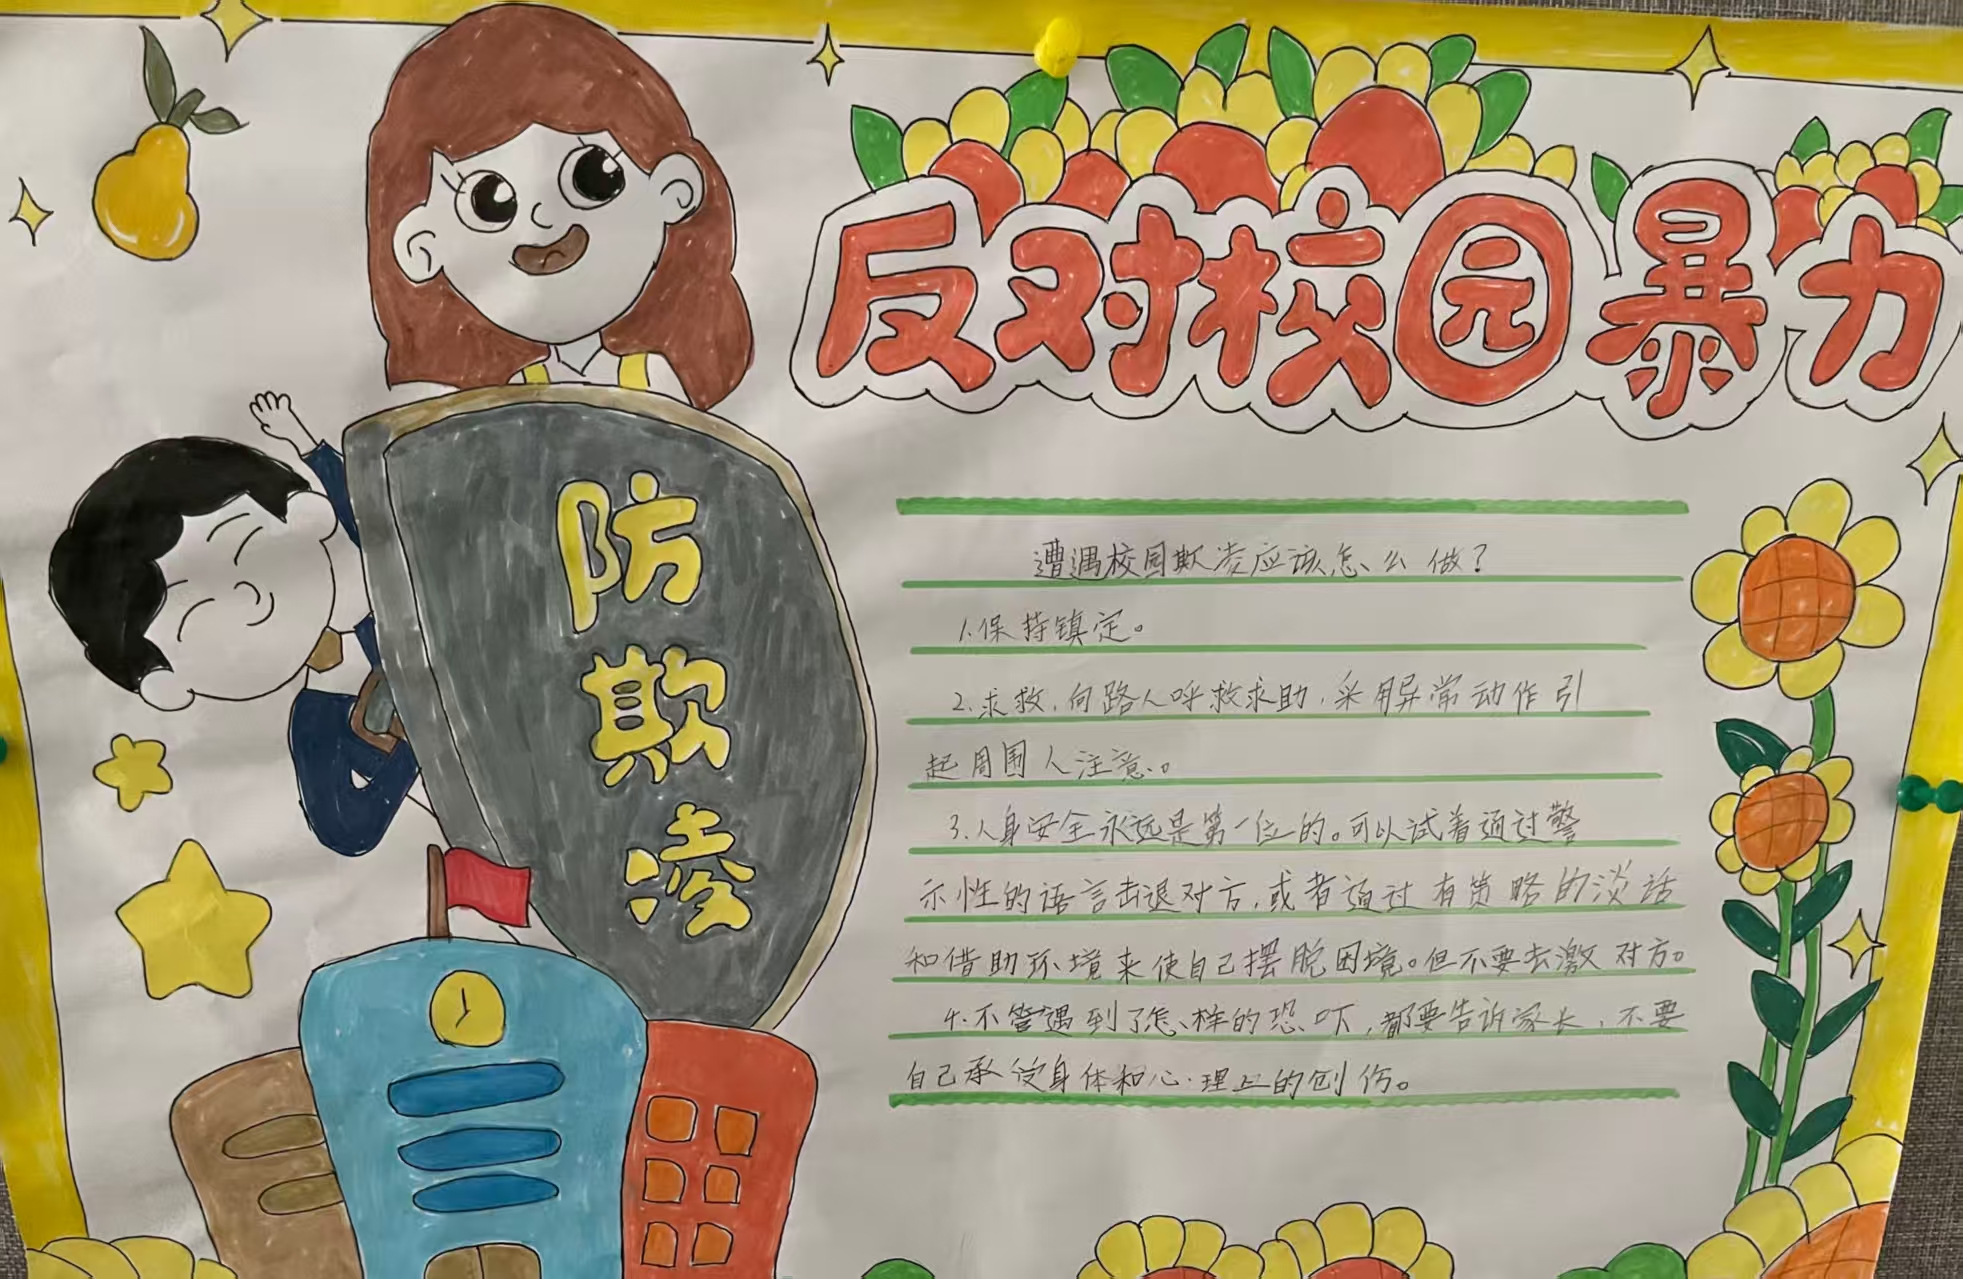 反对校园暴力
防欺凌
遭遇校园欺凌应该怎么做？
1.保持镇定。
2.求救，向路人呼救求助，采用异常动作引
起周围人注意。
3.人身安全永远是第一位的。可以试着通过警
示性的语言击退对方，或者通过有策略的淡话
和借助环境来使自己摆脱困境。但不要去激对方。
4.不管遇到了怎样的恐吓，都要告诉家长，不要
自己承受身体和心理上的创伤。